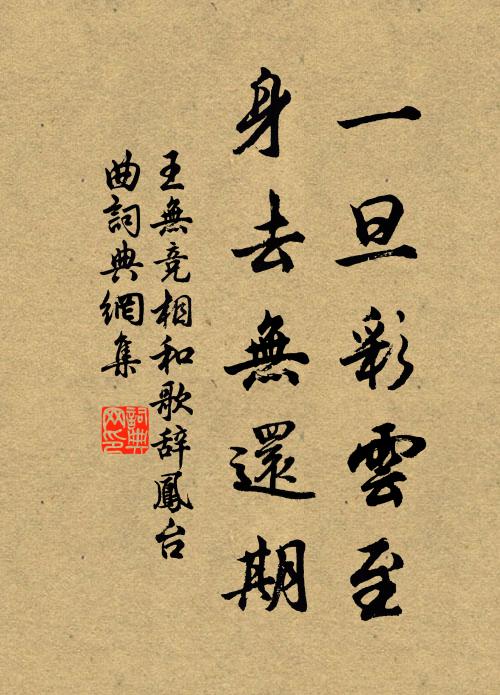 一旦彩雲至
身去無還期
王無競相和歌辞鳳台
曲詞典網集
詞典
网印